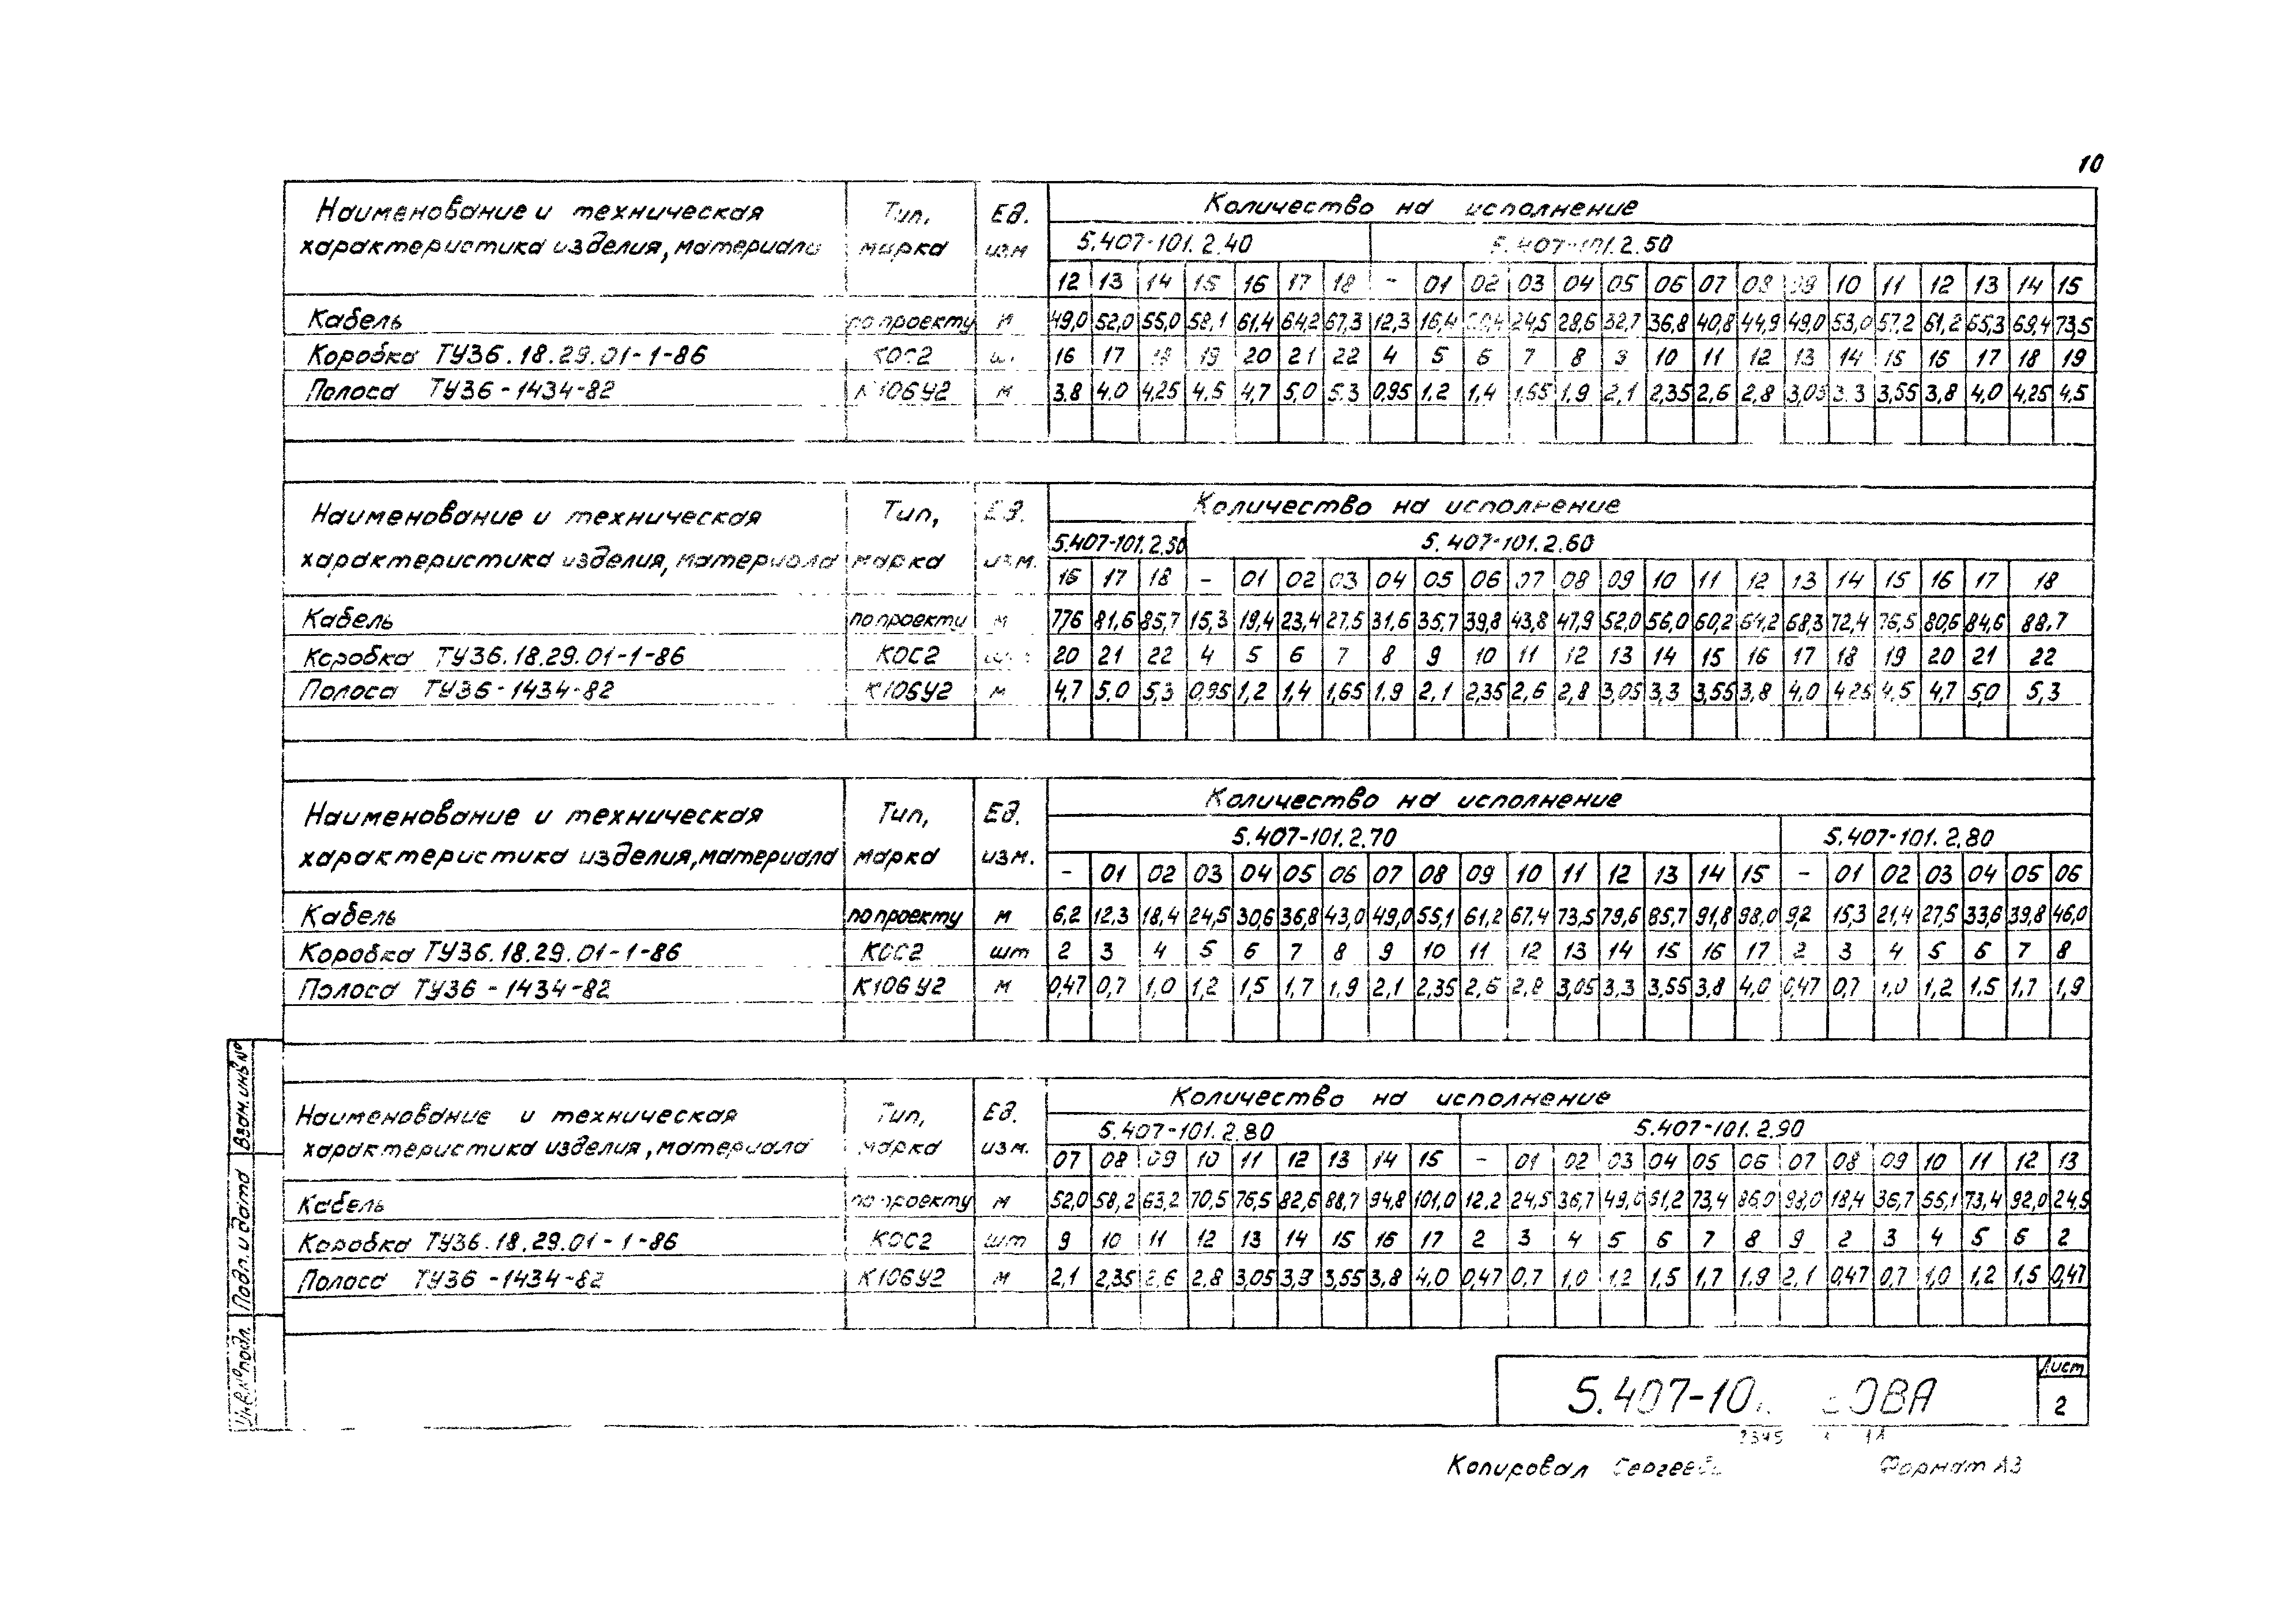 10
Наименование и техническая Тип, Ед. Количество на исполнение
характеристика изделия, материала марка изм 5.407-101.2.40 5.407-101.2.50
12 13 14 15 16 17 18 - 01 02 03 04 05 06 07 08 09 10 11 12 13 14 15
Кабель по проекту м 49,0 52,0 55,0 58,1 61,4 64,2 67,3 12,3 16,4 20,4 24,5 28,6 32,7 36,8 40,8 44,9 49,0 53,0 57,2 61,2 65,3 69,4 73,5
Коробка ТУ36.18.29.01-1-86 КОС2 шт 16 17 18 19 20 21 22 4 5 6 7 8 9 10 11 12 13 14 15 16 17 18 19
Полоса ТУ36-1434-82 К106У2 м 3,8 4,0 4,25 4,5 4,7 5,0 5,3 0,95 1,2 1,4 1,65 1,9 2,1 2,35 2,6 2,8 3,05 3,3 3,55 3,8 4,0 4,25 4,5
Наименование и техническая Тип, Ед. Количество на исполнение
характеристика изделия, материала марка изм. 5.407-101.2.50 5.407-101.2.60
16 17 18 - 01 02 03 04 05 06 07 08 09 10 11 12 13 14 15 16 17 18
Кабель по проекту м 77,6 81,6 85,7 15,3 19,4 23,4 27,5 31,6 35,7 39,8 43,8 47,9 52,0 56,0 60,2 64,2 68,3 72,4 76,5 80,6 84,6 88.7
Коробка ТУ36.18.29.01-1-86 КОС2 шт 20 21 22 4 5 6 7 8 9 10 11 12 13 14 15 16 17 18 19 20 21 22
Полоса ТУ36-1434-82 К106У2 м 4,7 5,0 5,3 0,95 1,2 1,4 1,65 1,9 2,1 2,35 2,6 2,8 3,05 3,3 3,55 3,8 4,0 4,25 4,5 4,7 5,0 5,3
Наименование и техническая Тип, Ед. Количество на исполнение
характеристика изделия, материала марка изм. 5.407-101.2.70 5.407-101.2.80
- 01 02 03 04 05 06 07 08 09 10 11 12 13 14 15 - 01 02 03 04 05 06
Кабель по проекту м 6,2 12.3 18,4 24,5 30,6 36,8 43,0 49,0 55,1 61,2 67.4 73,5 79,6 85,7 91,8 98,0 9,2 15,3 21,4 27,5 33,6 39,8 46,0
Коробка ТУ36.18.29.01-1-86 КОС2 шт 2 3 4 5 6 7 8 9 10 11 12 13 14 15 16 17 2 3 4 5 6 7 8
Полоса ТУ36-1434-82 К106У2 м 0,47 0,7 1,0 1,2 1,5 1,7 1,9 2,1 2,35 2,6 2,8 3,05 3,3 3,55 3,8 4,0 0,47 0,7 1,0 1,2 1.5 1,7 1,9
Наименование и техническая Тип, Ед. Количество на исполнение
характеристика изделия, материала марка изм. 5.407-101.2.80 5.407-101.2.90
07 08 09 10 11 12 13 14 15 - 01 02 03 04 05 06 07 08 09 10 11 12 13
Кабель по проекту м 52,0 58,2 63,2 70,5 76,5 82,6 88,7 94,8 101,0 12.2 24,5 36,7 49,0 61,2 73,4 86,0 98,0 18,4 36,7 55,1 73,4 92,0 24,5
Коробка ТУ36.18.29.01-1-86 КОС2 шт 9 10 11 12 13 14 15 16 17 2 3 4 5 6 7 8 9 2 3 4 5 6 2
Полоса ТУ36-1434-82 К106У2 м 2,1 2,35 2,6 2,8 3,05 3,3 3,55 3,8 4,0 0,47 0,7 1,0 1,2 1,5 1,7 1,9 2,1 0,47 0,7 1,0 1,2 1,5 0,47
Взам.инв№
Подп. и дата
Инв.№ подл.
5.407-10 ОВА
Лист
2
Копировал Сергеева Формат А3